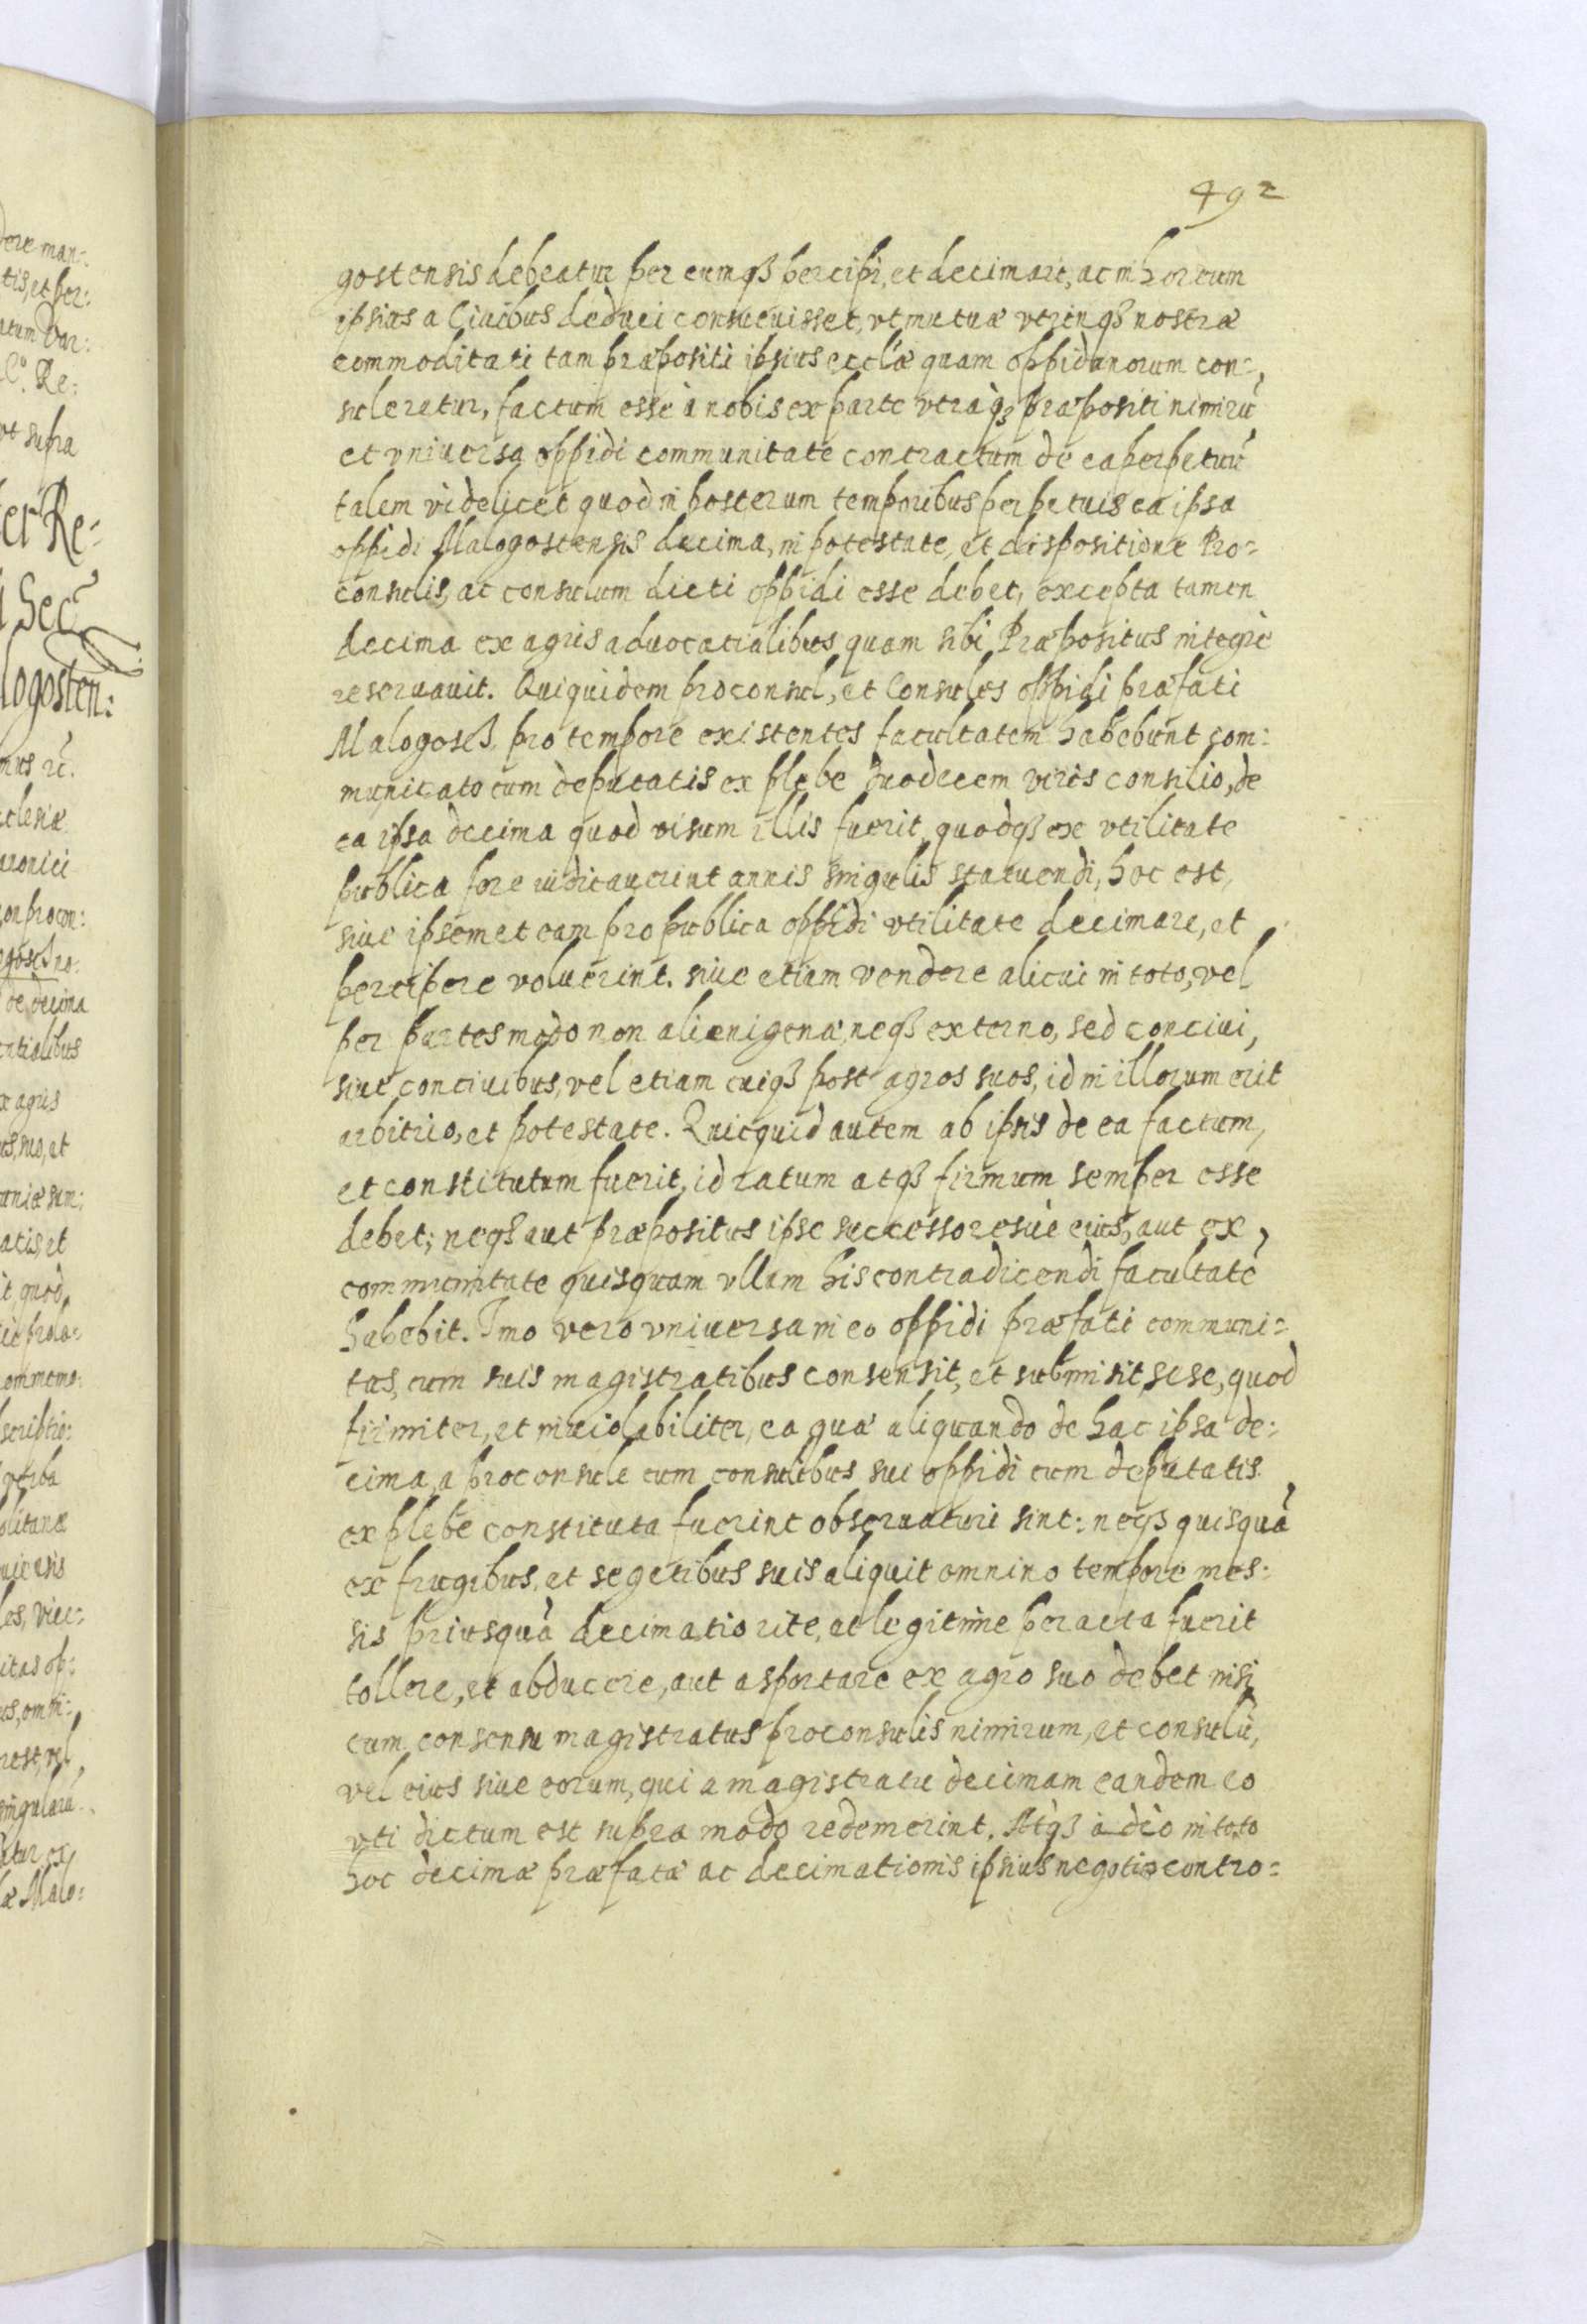 492
gostensis debeatur per eumq3 percipi, et decimari, ac in horreum
ipsius a Ciuibus deduci consueuisset, vt mutuæ vtrinq3 nostræ
commoditati tam præpositi ipsius eccl̃æ quam oppidanorum con=
suleretur, factum esse à nobis ex parte vtraq3 præpositi nimirũ
et vniuersa oppidi communitate contractum de ea perpetuũ
talem videlicet quod in posterum temporibus perpetuis ea ipsa
oppidi Malogostensis decima, in potestate, et dispositione Pro=
consulis, ac consulum dicti oppidi esse debet, excepta tamen
decima ex agris aduocatialibus quam sibi Præpositus integrè
reseruauit. Quiquidem proconsul, et Consules oppidi præfati
Malogosč3 pro tempore existentes facultatem habebunt com:
municato cum deputatis ex plebe duodecem viris consilio, de
ea ipsa decima quod visum illis fuerit, quodq3 ex vtilitate
publica fore iudicauerint annis singulis statuendi, hoc est,
siue ipsemet eam pro publica oppidi vtilitate decimare, et
percipere voluerint. siue etiam vendere alicui in toto, vel
per partes modo non alienigenæ, neq3 externo, sed conciui,
siue conciuibus, vel etiam cuiq3 post agros suos, id in illorum erit
arbitrio, et potestate. Quicquid autem ab ipsis de ea factum,
et constitutum fuerit, id ratum atq3 firmum semper esse
debet; neq3 aut præpositus ipse successoresuè eius, aut ex
communitate quisquam vllam his contradicendi facultatẽ
habebit. Imo vero vniuersa in eo oppidi præfati communi=
tas, cum suis magistratibus consensit, et submisit sese, quod
firmiter, et inuiolabiliter, ea quæ aliquando de hac ipsa de:
cima, a proconsule cum consulibus sui oppidi cum deputatis
ex plebe constituta fuerint obseruaturi sint: neq3 quisquã
ex frugibus, et segetibus suis aliquit omnino tempore mes:
sis priusquã decimatio rite, ac legitime peracta fuerit
tollere, et abducere, aut asportare ex agro suo debet nisi
cum consensu magistratus proconsulis nimirum, et consulũ,
vel eius siue eorum, qui a magistratu decimam eandem eo
vti dictum est supra modo redemerint. Atq3 àdèo in toto
hoc decimæ præfatæ ac decimationis ipsius negotio contro=